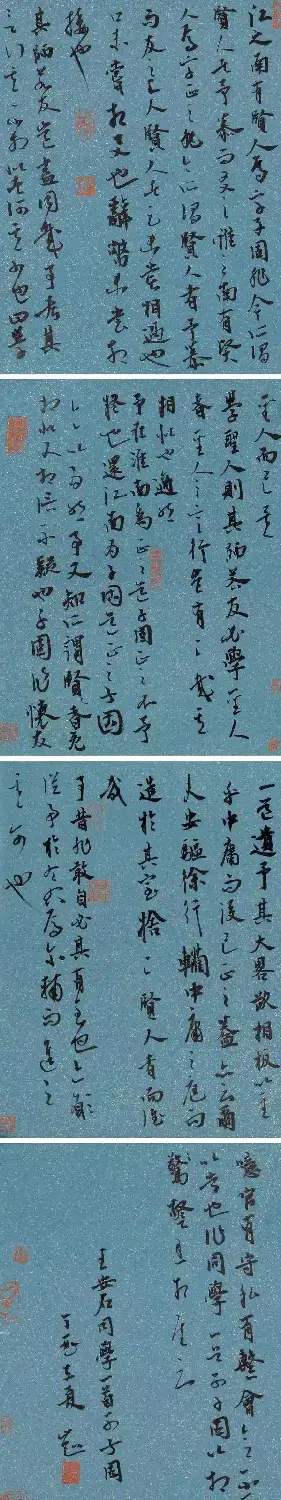 江之南有賢人焉字子固非今所謂
賢人者予慕而友之淮之南有賢
人焉字正之非今所謂賢人者予慕
而友之二賢人者足未嘗相過也
口未嘗相語也辭幣未嘗相
接也
其師若友豈盡同哉予考其
言行其不相似者何其少也曰學
聖人而已矣
學聖人則其師若友必學聖人
者聖人之言行豈有二哉其
相似也適然
予在淮南為正之道子固正之不予
疑也還江南為子固道正之子固
亦以為然予又知所謂賢者既
相似又相信不疑也子固作懷友
一首遺予其大畧欲相扳以至
乎中庸而後已正之蓋亦云爾
夫安驅徐行轥中庸之庭而
造於其室捨二賢人者而誰
哉
予昔非敢自必其有至也亦願
從事於左右焉爾輔而進之
其可也
噫官有守私有繫會合不可
以常也作同學一首別子固以相
警且相慰云
王安石同學一首別子固
丁酉立夏